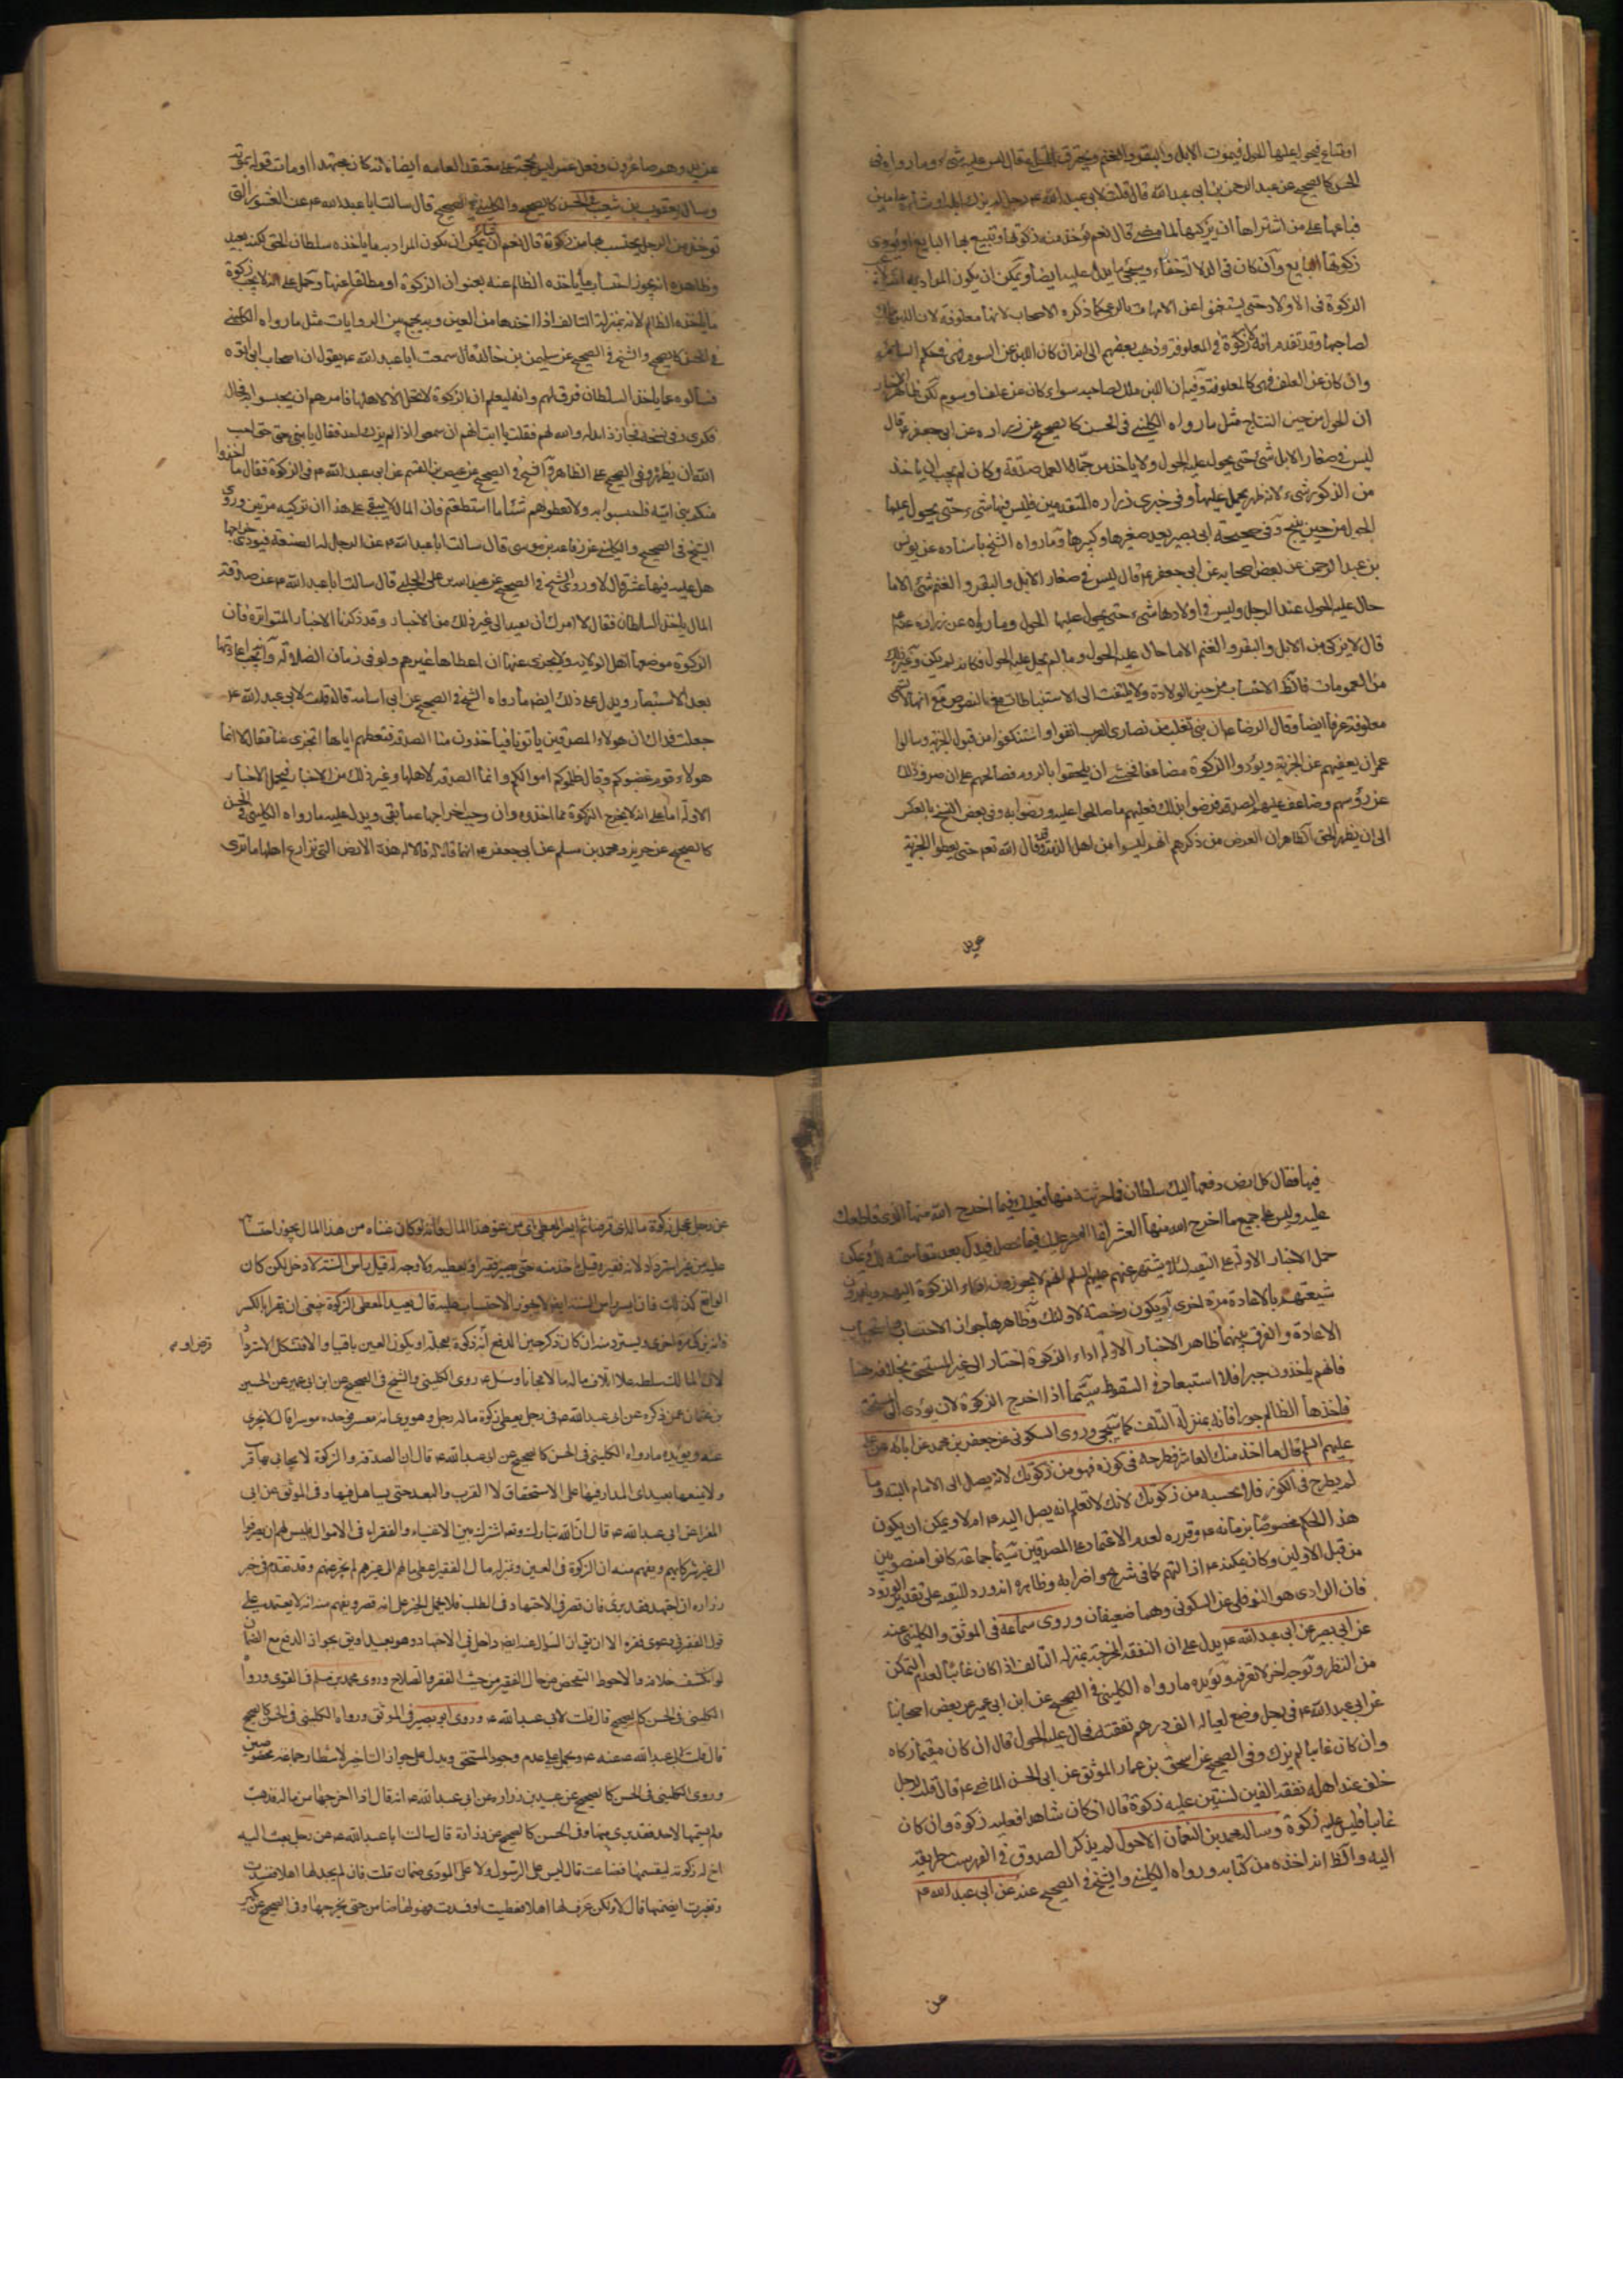 او تباع فيحول عليها الحول فيموت الابل والبقر والغنم ويحترق المتاع قال ليس عليه شيء وما رواه في
الحسن كالصحيح عن عبد الرحمن بن ابي عبد الله قال قلت لابي عبد الله ع رجل لم يزك ابله او شاته عامين
فباعها على من اشتراها ان يزكيها لما مضى قال نعم يؤخذ منه زكوتها ويتبع بها البايع او يؤدي
زكوتها البايع وان كان في الدلالة خفاء وسيجئ ما يدل عليه ايضا ويمكن ان يكون المراد به
الزكوة في الاولاد حتى يستغنوا عن الامهات بالرعي كما ذكره الاصحاب لانها معلوفة لان اللبن ملك
لصاحبها وقد تقدم انه لا زكوة في المعلوفة وذهب بعضهم الى انه ان كان اللبن عن السوم فهي في حكم السائمة
وان كان عن العلف فهي كالمعلوفة وفيه ان اللبن ملك لصاحبه سواء كان عن علف او سوم لكن ظاهر الاخبار
ان الحول من حين النتاج مثل ما رواه الكليني في الحسن كالصحيح عن زرارة عن ابي جعفر ع قال
ليس في صغار الابل شئ حتى يحول عليه الحول ولا ياخذ من جمال العمل صدقة وكان لم يحب ان ياخذ
من الذكور شيء لانه ظهر يحمل عليها وفي خبري زرارة المتقدمين فليس فيها شيء حتى يحول عليها
الحول من حين ينتج وفي صحيحة ابي بصير يعد صغيرها وكبيرها وما رواه الشيخ باسناده عن يونس
بن عبد الرحمن عن بعض اصحابه عن ابي جعفر ع قال ليس في صغار الابل والبقر والغنم شئ الا ما
حال عليه الحول عند الرجل وليس في اولادها شيء حتى يحول عليها الحول وما رواه عن زرارة عنه ع
قال لا يزكى من الابل والبقر والغنم الا ما حال عليه الحول وما لم يحل عليه الحول فكانه لم يكن وغير ذلك
من العمومات فالظ الاحتساب من حين الولادة ولا يلتفت الى الاستنباطات مع النصوص مع انها لا تسمى
معلوفة عرفا ايضا وقال الرضا ع ان بني تغلب من نصارى العرب انفوا واستنكفوا من قبول الجزية وسالوا
عمر ان يعفيهم عن الجزية ويؤدوا الزكوة مضاعفا فخشي ان يلحقوا بالروم فصالحهم على ان صرف ذلك
عن رؤسهم وضاعف عليهم الصدقة فرضوا بذلك فعليهم ما صالحوا عليه ورضوا به وفي بعض النسخ بالعكس
الى ان يظهر الحق الظاهر ان الغرض من ذكرهم انهم ليسوا من اهل الذمة وقد قال الله تعم حتى يعطوا الجزية
عن يد
عن يد وهم صاغرون وفعل عمر ليس بحجة على معتقد العامة ايضا لانه كان مجتهدا او مات قوله بموته
وسال يعقوب بن شعيب في الحسن كالصحيح والكليني في الصحيح قال سالت ابا عبد الله ع عن العشور التي
تؤخذ من الرجل يحتسب بها من زكوته قال نعم ان شاء يمكن ان يكون المراد به ما ياخذه سلطان الحق لكنه بعيد
وظاهره انه يجوز احتساب ما ياخذه الظالم عنه بعنوان الزكوة او مطلقا عنها وحمل على انه لا يجب زكوة
ما ياخذه الظالم لانه بمنزلة التالف اذا اخذها من العين وبه يجمع بين الروايات مثل ما رواه الكليني
في الحسن كالصحيح والشيخ في الصحيح عن سليمن بن خالد قال سمعت ابا عبد الله ع يقول ان اصحاب ابي اتوه
فسالوه عما ياخذ السلطان فرق لهم وانه ليعلم ان الزكوة لا تحل الا لاهلها فامرهم ان يحتسبوا به فجال
فكري في نسخة فجاز ذا لهم والله لهم فقلت يا ابت انهم ان سمعوا اذا لم يزك احد فقال يا بني حق احب
الله ان يظهره وفي الصحيح على الظاهر والشيخ في الصحيح عن عيص بن القسم عن ابي عبد الله ع في الزكوة فقال ما اخذوا
منكم بنو امية فاحتسبوا به ولا تعطوهم شيئا ما استطعتم فان المال لا يبقى على هذا ان تزكيه مرتين وروى
الشيخ في الصحيح والكليني عن رفاعة بن موسى قال سالت ابا عبد الله ع عن الرجل له الضيعة فيؤدي خراجها
هل عليه فيها عشر قال لا وروى الشيخ في الصحيح عن عبيد الله بن علي الحلبي قال سالت ابا عبد الله ع عن صدقة
المال ياخذ السلطان فقال لا امرك ان تعيد الى غير ذلك من الاخبار وقد ذكرنا الاخبار المتواترة فان
الزكوة موضعها اهل الولاية ولا يجزى عنها ان اعطاها غيرهم ولو في زمان الضلالة وانه يجب اعادتها
بعد الاستبصار ويدل على ذلك ايضا ما رواه الشيخ في الصحيح عن ابي اسامة قال قلت لابي عبد الله ع
جعلت فداك ان هولاء المصدقين ياتونا فياخذون منا الصدقة فنعطيهم اياها اتجزى عنا فقال لا انما
هولاء قوم غصبوكم وقال ظلموكم اموالكم وانما الصدقة لاهلها وغير ذلك من الاخبار فيحمل الاخبار
الاولة اما على انه لا يخرج الزكوة مما اخذوه وان وجب اخراجها عما بقي ويدل عليه ما رواه الكليني في الحسن
كالصحيح عن حريز ومحمد بن مسلم عن ابي جعفر ع انهما قالا له هذه الارض التي يزارع اهلها ما ترى
فيها فقال كل ارض دفعها اليك سلطان فما حرثته منها فعليك فيما اخرج الله منها الذي قاطعك
عليه وليس على جميع ما اخرج الله منها العشر انما العشر عليك فيما يحصل في يدك بعد مقاسمته لك ويمكن
حمل الاخبار الاولة على التقية لئلا يشتهر عنهم عليهم السلم انهم لا يجوزون اداء الزكوة اليهم ويامرون
شيعتهم بالاعادة مرة اخرى او يكون رخصة لاولئك وظاهرها جواز الاحتساب
الاعادة والفرق بينهما ظاهر الاخبار الاولة اداء الزكوة اختيارا الى غير المستحق بخلاف هنا
فانهم ياخذون جبرا فلا استبعاد في السقوط سيما اذا اخرج الزكوة لان يؤدى الى المستحق
فاخذها الظالم جورا فانه بمنزلة التلف كما سيجئ وروى السكوني عن جعفر بن محمد عن ابائه عن علي
عليهم السلم قال ما اخذ منك العاشر فطرحه في كوزه فهو من زكوتك لانه يصل الى الامام البتة وما
لم يطرح في الكوز فلا تحتسبه من زكوتك لانك لا تعلم انه يصل اليه ع ام لا ويمكن ان يكون
هذا الحكم مخصوصا بزمانه ع وقرره لعدم الاعتماد على المصدقين سيما جماعة كانوا منصوبين
من قبل الاولين وكان يمكنه ع اذ اتهم كما في شريح واضرابه وظاهره انه ورد للتقية على تقدير الورود
فان الراوي هو النوفلي عن السكوني وهما ضعيفان وروى سماعة في الموثق والكليني عنه
عن ابي بصير عن ابي عبد الله ع يدل على ان النفقة المخرجة بمنزلة التالف اذا كان غائبا لعدم التمكن
من النظر وتوجه اخر لا نعرفه ويؤيده ما رواه الكليني في الصحيح عن ابن ابي عمير عن بعض اصحابنا
عن ابي عبد الله ع في رجل وضع لعياله الف درهم نفقة فحال عليها الحول قال ان كان مقيما زكاه
وان كان غائبا لم يزك وفي الصحيح عن اسحق بن عمار الموثق عن ابي الحسن الماضي ع قال قلت له رجل
خلف عند اهله نفقة الفين لسنتين عليه زكوة قال ان كان شاهدا فعليه زكوة وان كان
غائبا فليس عليه زكوة وساله محمد بن النعمان الاحول لم يذكر الصدوق في الفهرست طريقه
اليه والظ انه اخذه من كتابه ورواه الكليني والشيخ في الصحيح عنه عن ابي عبد الله ع
عن
عن رجل عجل زكوة ماله اي قرضا ثم ايسر المعطى اي من غير هذا المال فانه لو كان غناه من هذا المال يجوز احتسابه
عليه من غير استرداد لانه فقير وقيل ياخذ منه حتى يصير فقيرا ثم يعطيه ولا وجه له قبل راس السنة لا دخل لكن كان
الواقع كذلك فان ايسر راس السنة ايضا لا يجوز الاحتساب عليه قال يعيد المعطي الزكوة ينبغي ان يقرا بالكسر
فانه يزكي مرة اخرى ويسترد منه ان كان ذكر حين الدفع انه زكوة معجلة او يكون العين باقيا والا فيشكل الاسترداد
قرض او م
لان المالك سلطه على اتلاف ماله مالا مجانا وسئل ع روى الكليني والشيخ في الصحيح عن ابن ابي عمير عن الحسين
بن عثمان عمن ذكره عن ابي عبد الله ع في رجل يعطي زكوة ماله رجل وهو يرى انه معسر فوجده موسرا قال لا يجزى
عنه ويؤيده ما رواه الكليني في الحسن كالصحيح عن ابي عبد الله ع قال ان الصدقة والزكوة لا يحابى بها قريب
ولا يمنعها بعيد اي المدار فيها على الاستحقاق لا القرب والبعد حتى يساهل فيها وفي الموثق عن ابي
المغرا عن ابي عبد الله ع قال ان الله تبارك وتعم اشرك بين الاغنياء والفقراء في الاموال فليس لهم ان يصرفوا
الى غير شركائهم ويفهم منه ان الزكوة في العين وبمنزلة مال الفقير اعطى مالهم الى غيرهم لم يجز عنهم وقد تقدم في خبر
زرارة ان اجتهد فقد برئ فان قصر في الاجتهاد في الطلب فلا يحمل الخبر على انه قصر ويفهم منه انه لا يعتمد على
قول الفقير في دعوى فقره الا ان يق ان السؤال عنه ايضا داخل في الاجتهاد وهو بعيد او يق بجواز الدفع مع الضمان
لو انكشف خلافه والاحوط التفحص من حال الفقير من حيث الفقر والصلاح وروى محمد بن مسلم في القوي ورواه
الكليني في الحسن كالصحيح قال قلت لابي عبد الله ع وروى ابو بصير في الموثق ورواه الكليني في الحسن كالصحيح
قال قلت لابي عبد الله عنه ع ويحمل على عدم وجود المستحق ويدل على جواز التاخير لانتظار جماعة مخصوصين
وروى الكليني في الحسن كالصحيح عن عبيد بن زرارة عن ابي عبد الله ع انه قال اذا اخرجها من ماله فذهبت
ولم يسمها لاحد فقد برئ منها وفي الحسن كالصحيح عن زرارة قال سالت ابا عبد الله ع عن رجل بعث اليه
اخ له زكوته ليقسمها فضاعت قال ليس على الرسول ولا على المؤدي ضمان قلت فان لم يجد لها اهلا ففسدت
وتغيرت ايضمنها قال لا ولكن عرف لها اهلا فعطبت او فسدت فهو لها ضامن حتى يخرجها وفي الصحيح عن بكير